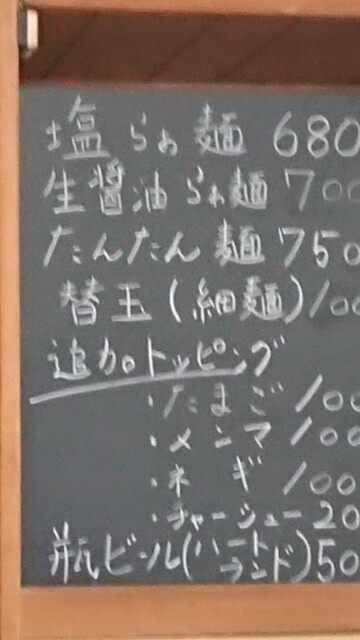 塩らぁ麺 680
生醤油らぁ麺 700
たんたん麺 750
替玉(細麺) 100
追加トッピング
・たまご 100
・メンマ 100
・ネギ 100
・チャーシュー 20
瓶ビール(ハートランド) 50